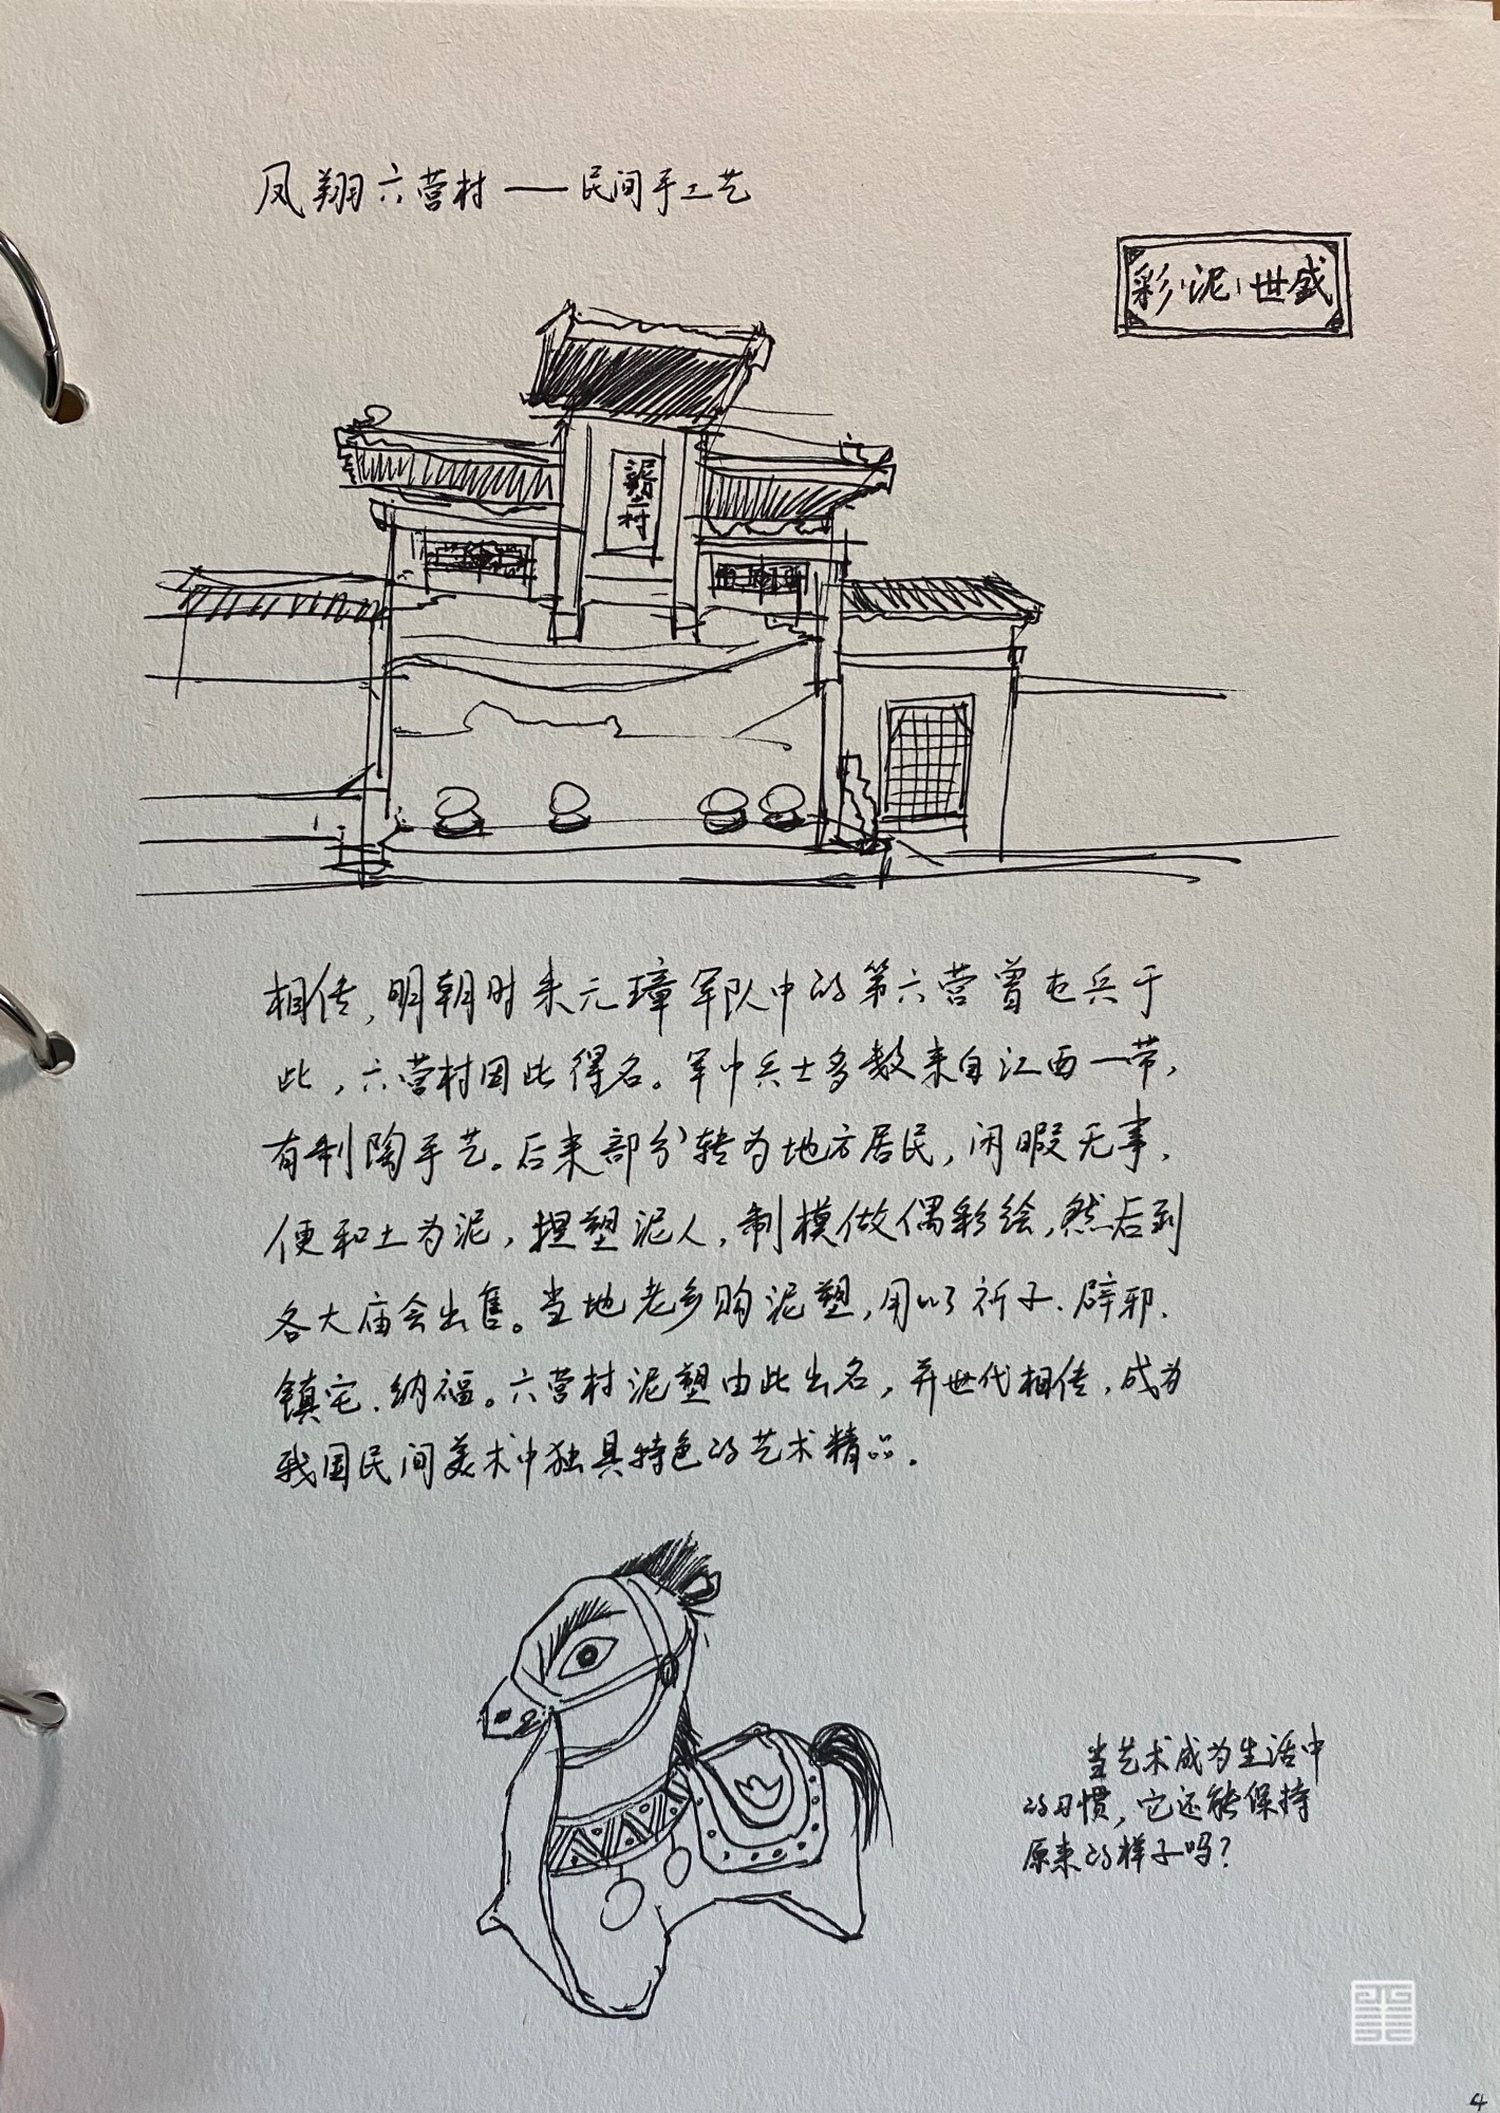 凤翔六营村——民间手工艺
彩泥世盛
泥塑村
相传,明朝时朱元璋军队中的第六营曾屯兵于
此,六营村因此得名。军中兵士多数来自江西一带,
有制陶手艺。后来部分转为地方居民,闲暇无事,
便和土为泥,捏塑泥人,制模做偶彩绘,然后到
各大庙会出售。当地老乡购泥塑,用以祈子、辟邪、
镇宅、纳福。六营村泥塑由此出名,并世代相传,成为
我国民间美术中独具特色的艺术精品。
当艺术成为生活中
的习惯,它还能保持
原来的样子吗?
4